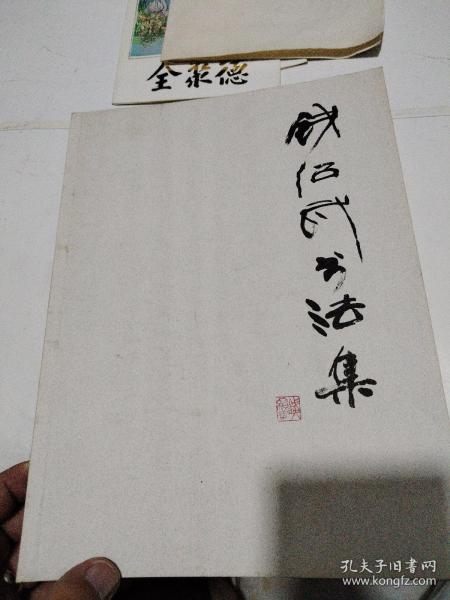 全聚德
钱绍武书法集
孔夫子旧书网
www.kongfz.com